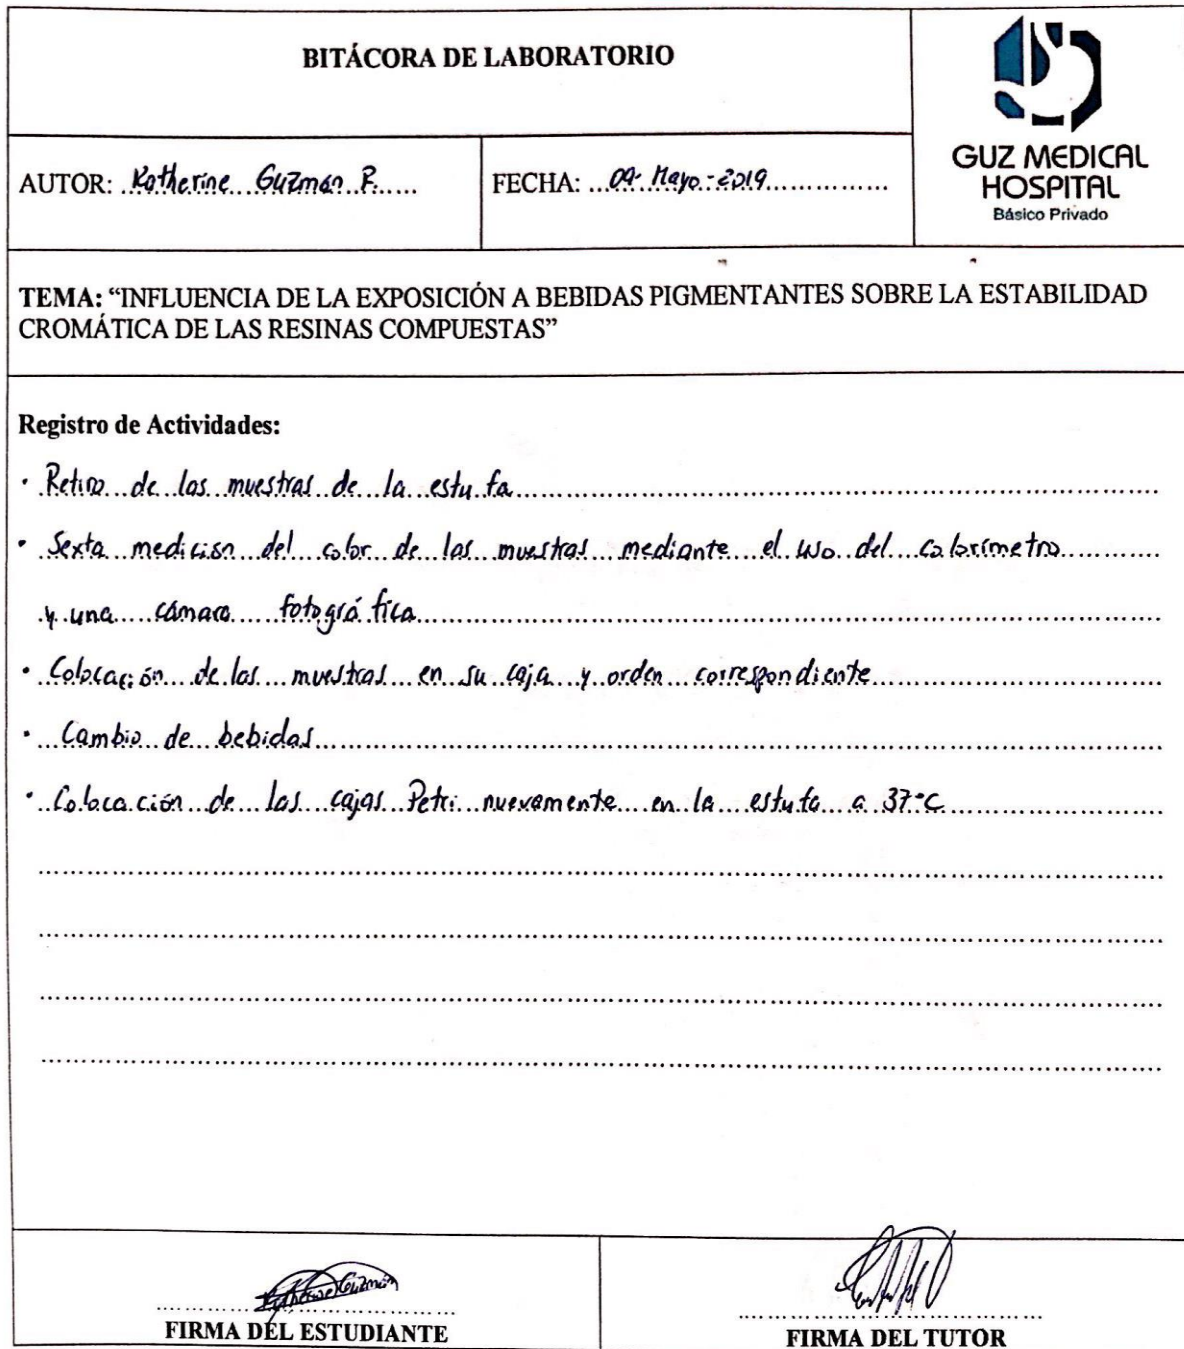 BITÁCORA DE LABORATORIO
GUZ MEDICAL
HOSPITAL
Básico Privado
AUTOR: Katherine Guzmán P.
FECHA: 09-Mayo-2019
TEMA: “INFLUENCIA DE LA EXPOSICIÓN A BEBIDAS PIGMENTANTES SOBRE LA ESTABILIDAD
CROMÁTICA DE LAS RESINAS COMPUESTAS”
Registro de Actividades:
· Retiro de las muestras de la estufa
· Sexta medición del color de las muestras mediante el uso del colorímetro
y una cámara fotográfica
· Colocación de las muestras en su caja y orden correspondiente
· Cambio de bebidas
· Colocación de las cajas Petri nuevamente en la estufa a 37°C
Katherine Guzmán
FIRMA DEL ESTUDIANTE
FIRMA DEL TUTOR